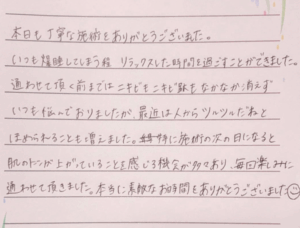 本日も丁寧な施術をありがとうございました。
いつも爆睡してしまう程 リラックスした時間を過ごすことができました。
通わせて頂く前まではニキビもニキビ跡もなかなか消えず
いつも悩んでおりましたが、最近は人からツルツルだねと
ほめられることも増えました。特に施術の次の日になると
肌のトーンが上がっていることを感じる機会が多々あり、毎回楽しみに
通わせて頂きました。本当に素敵なお時間をありがとうございました